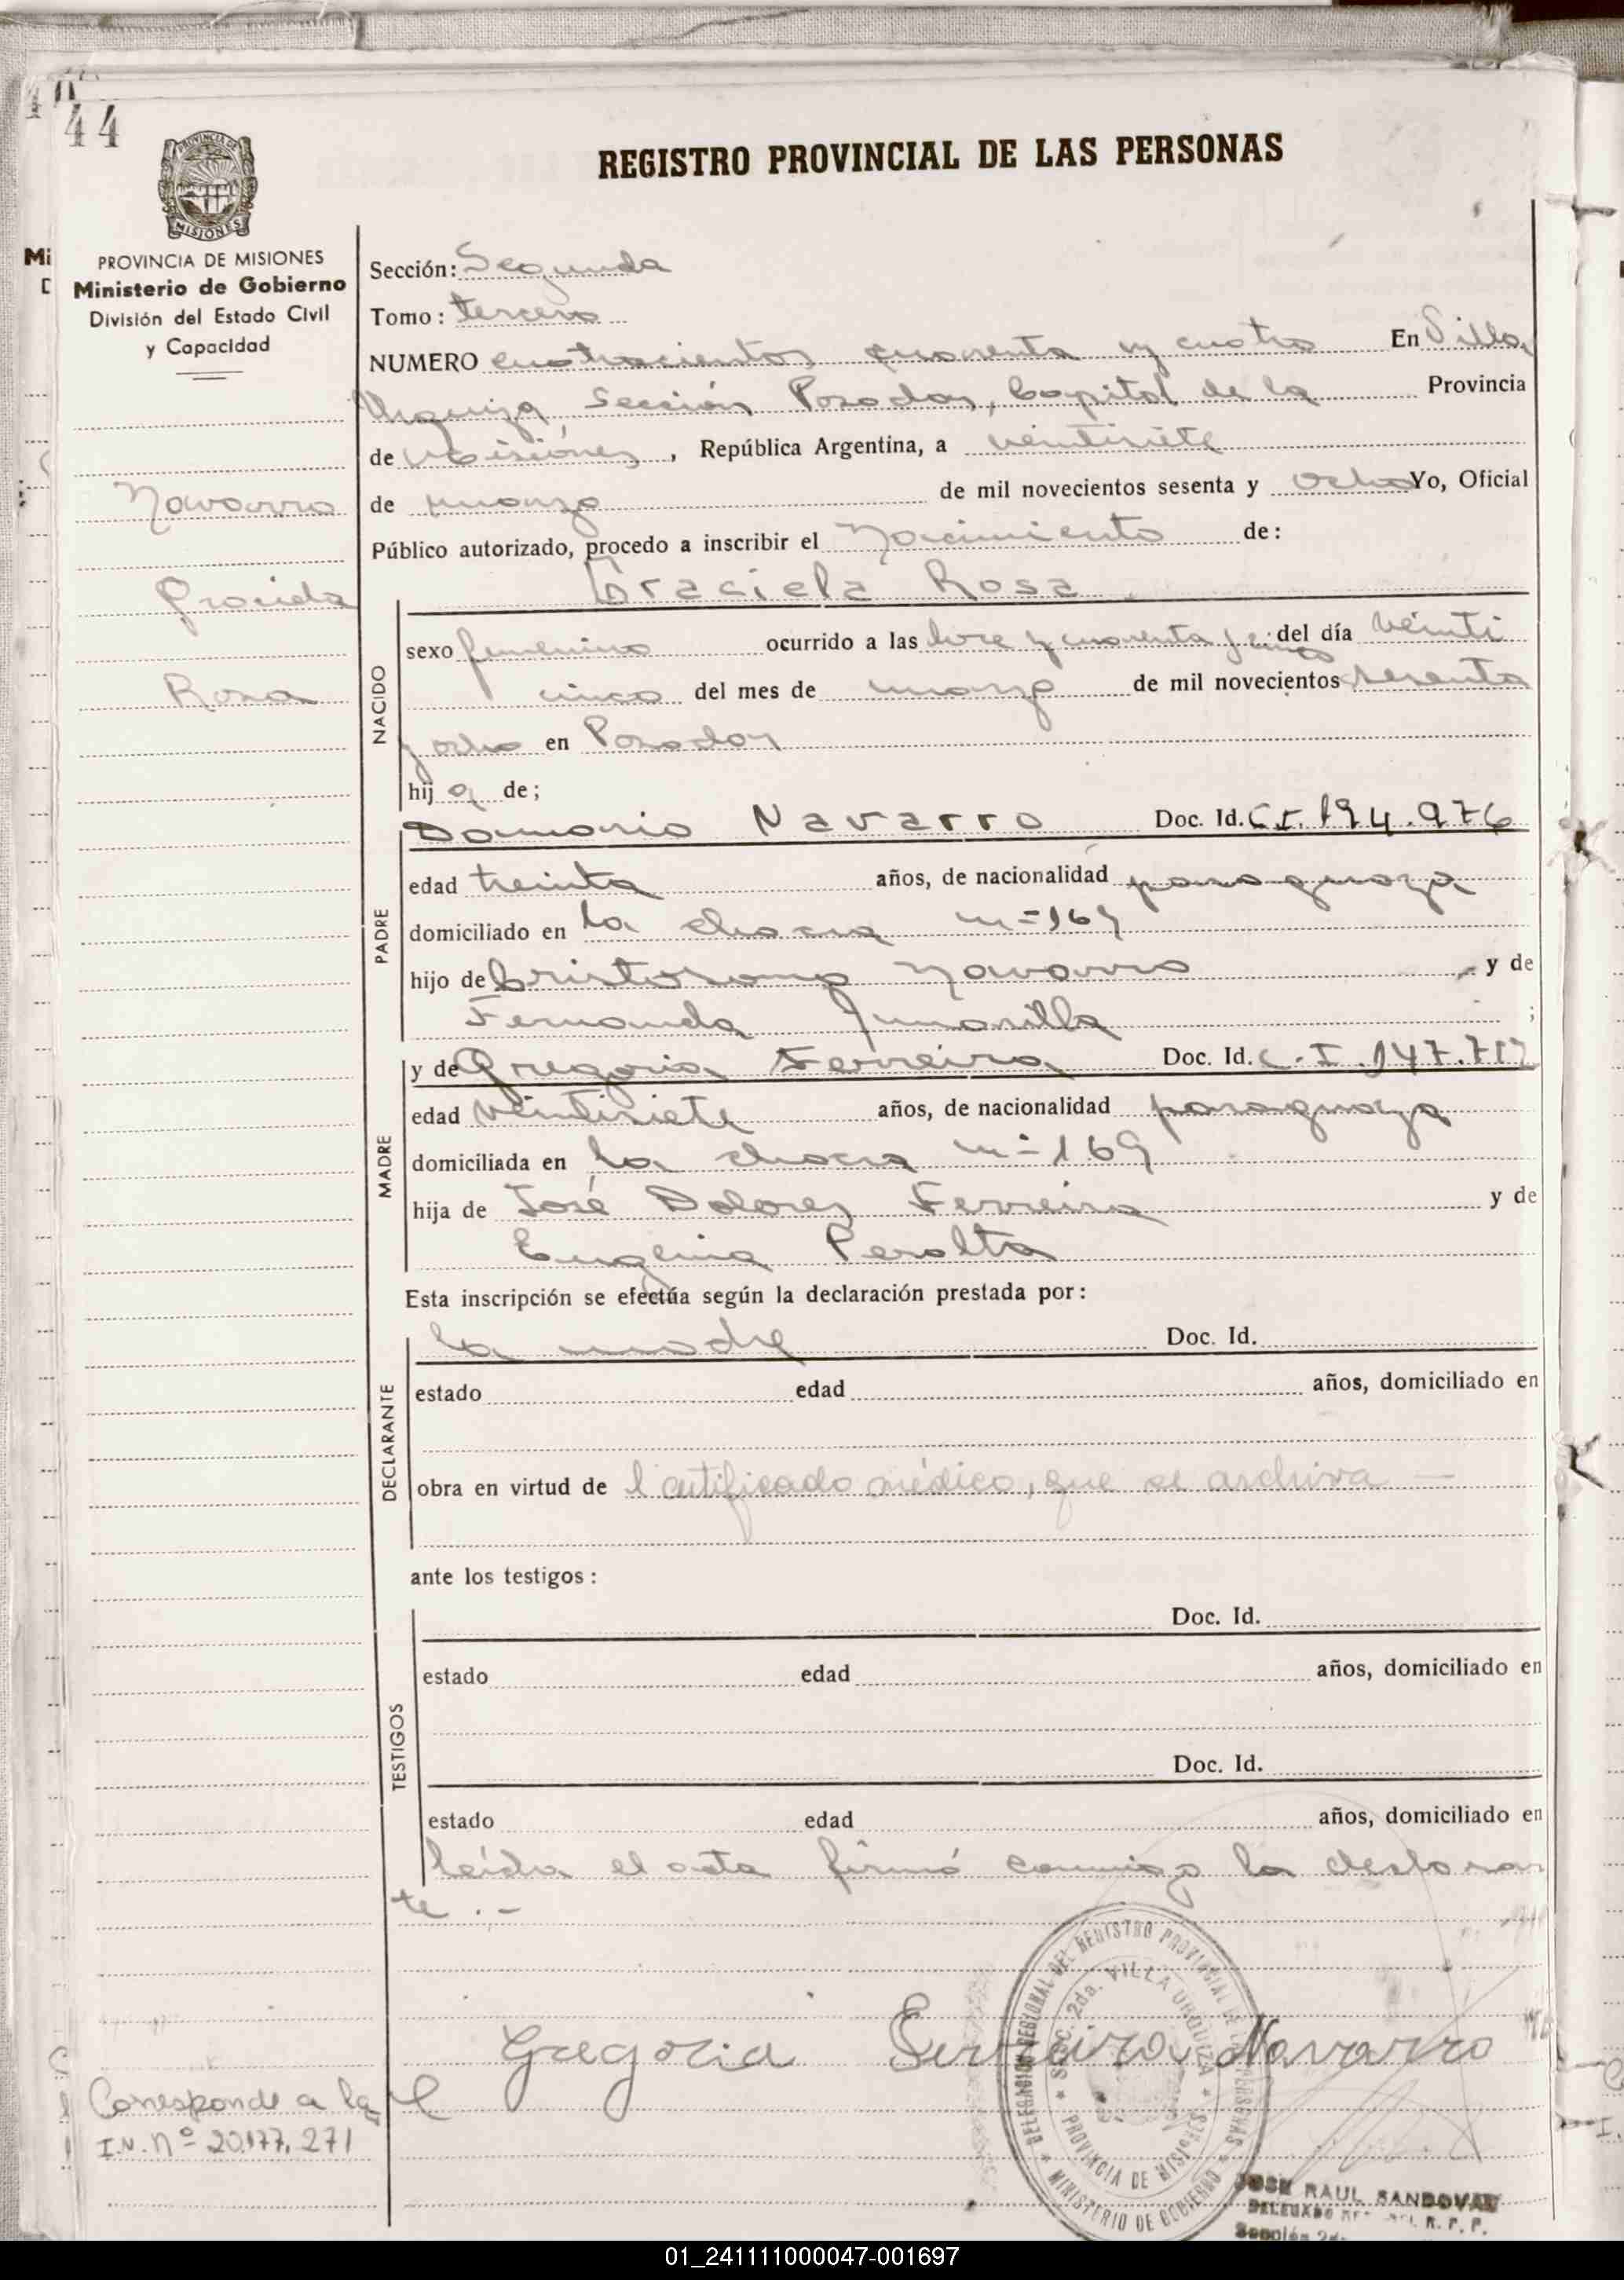 44
REGISTRO PROVINCIAL DE LAS PERSONAS
MISIONES
PROVINCIA DE MISIONES
Ministerio de Gobierno
División del Estado Civil
y Capacidad
Sección: Segunda
Tomo: tercero
NUMERO cuatrocientos cuarenta y cuatro En Villa
Urquiza Sección Posadas, Capital de la Provincia
de Misiónes, República Argentina, a veintisiete
Navarro
de marzo de mil novecientos sesenta y ocho Yo, Oficial
Público autorizado, procedo a inscribir el Nacimiento de:
Graciela
Graciela Rosa
sexo femenino ocurrido a las y cuarenta y cinco del día veinti
Rosa
NACIDO
cinco del mes de marzo de mil novecientos sesenta
y ocho en Posadas
hija de;
Navarro Doc. Id. C.I. 194.976
PADRE
edad treinta años, de nacionalidad paraguaya
domiciliado en La chacra n=169
hijo de Navarro y de
Fernanda ;
y de Gregoria Ferreira Doc. Id. C.I. 147.712
MADRE
edad veintisiete años, de nacionalidad paraguaya
domiciliada en La chacra n=169
hija de José Dolores Ferreira y de
Eugenia Peralta
Esta inscripción se efectúa según la declaración prestada por:
la madre Doc. Id.
DECLARANTE
estado edad años, domiciliado en
obra en virtud de certificado médico, que se archiva —
ante los testigos:
TESTIGOS
Doc. Id.
estado edad años, domiciliado en
Doc. Id.
estado edad años, domiciliado en
Leída el acta firmó conmigo la declaran
te .-
DELEGACION REGIONAL DEL REGISTRO PROVINCIAL DE LAS PERSONAS
SECC. 2da. VILLA URQUIZA
PROVINCIA DE MISIONES
MINISTERIO DE GOBIERNO
Gregoria Ferreira Navarro
Corresponde a la
I.N. nº 20.177.271
JOSE RAUL SANDOVAL
DELEGADO R. P. P.
01_241111000047-001697